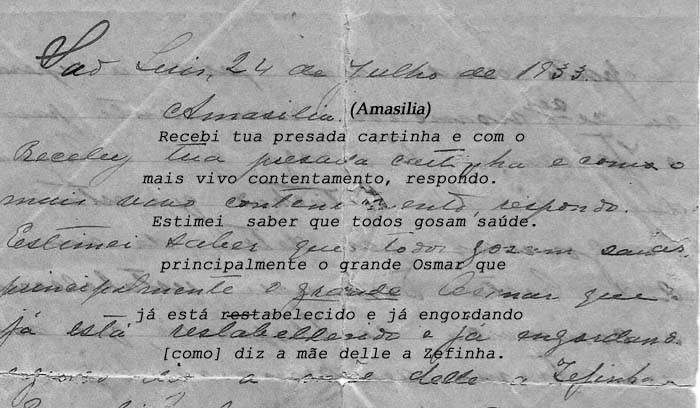 São Luis, 24 de Julho de 1933.
Amasilia. (Amasilia)
Recebi tua presada cartinha e com o
Recebey tua presada cartinha e com o
mais vivo contentamento, respondo.
mais vivo contentamento, respondo.
Estimei saber que todos gosam saúde.
Estimei saber que todos gosam saude,
principalmente o grande Osmar que
principalmente o grande Osmar que
já está restabelecido e já engordando
já está restabellecido e já engordando
[como] diz a mãe delle a Zefinha.
diz a mãe delle a Zefinha